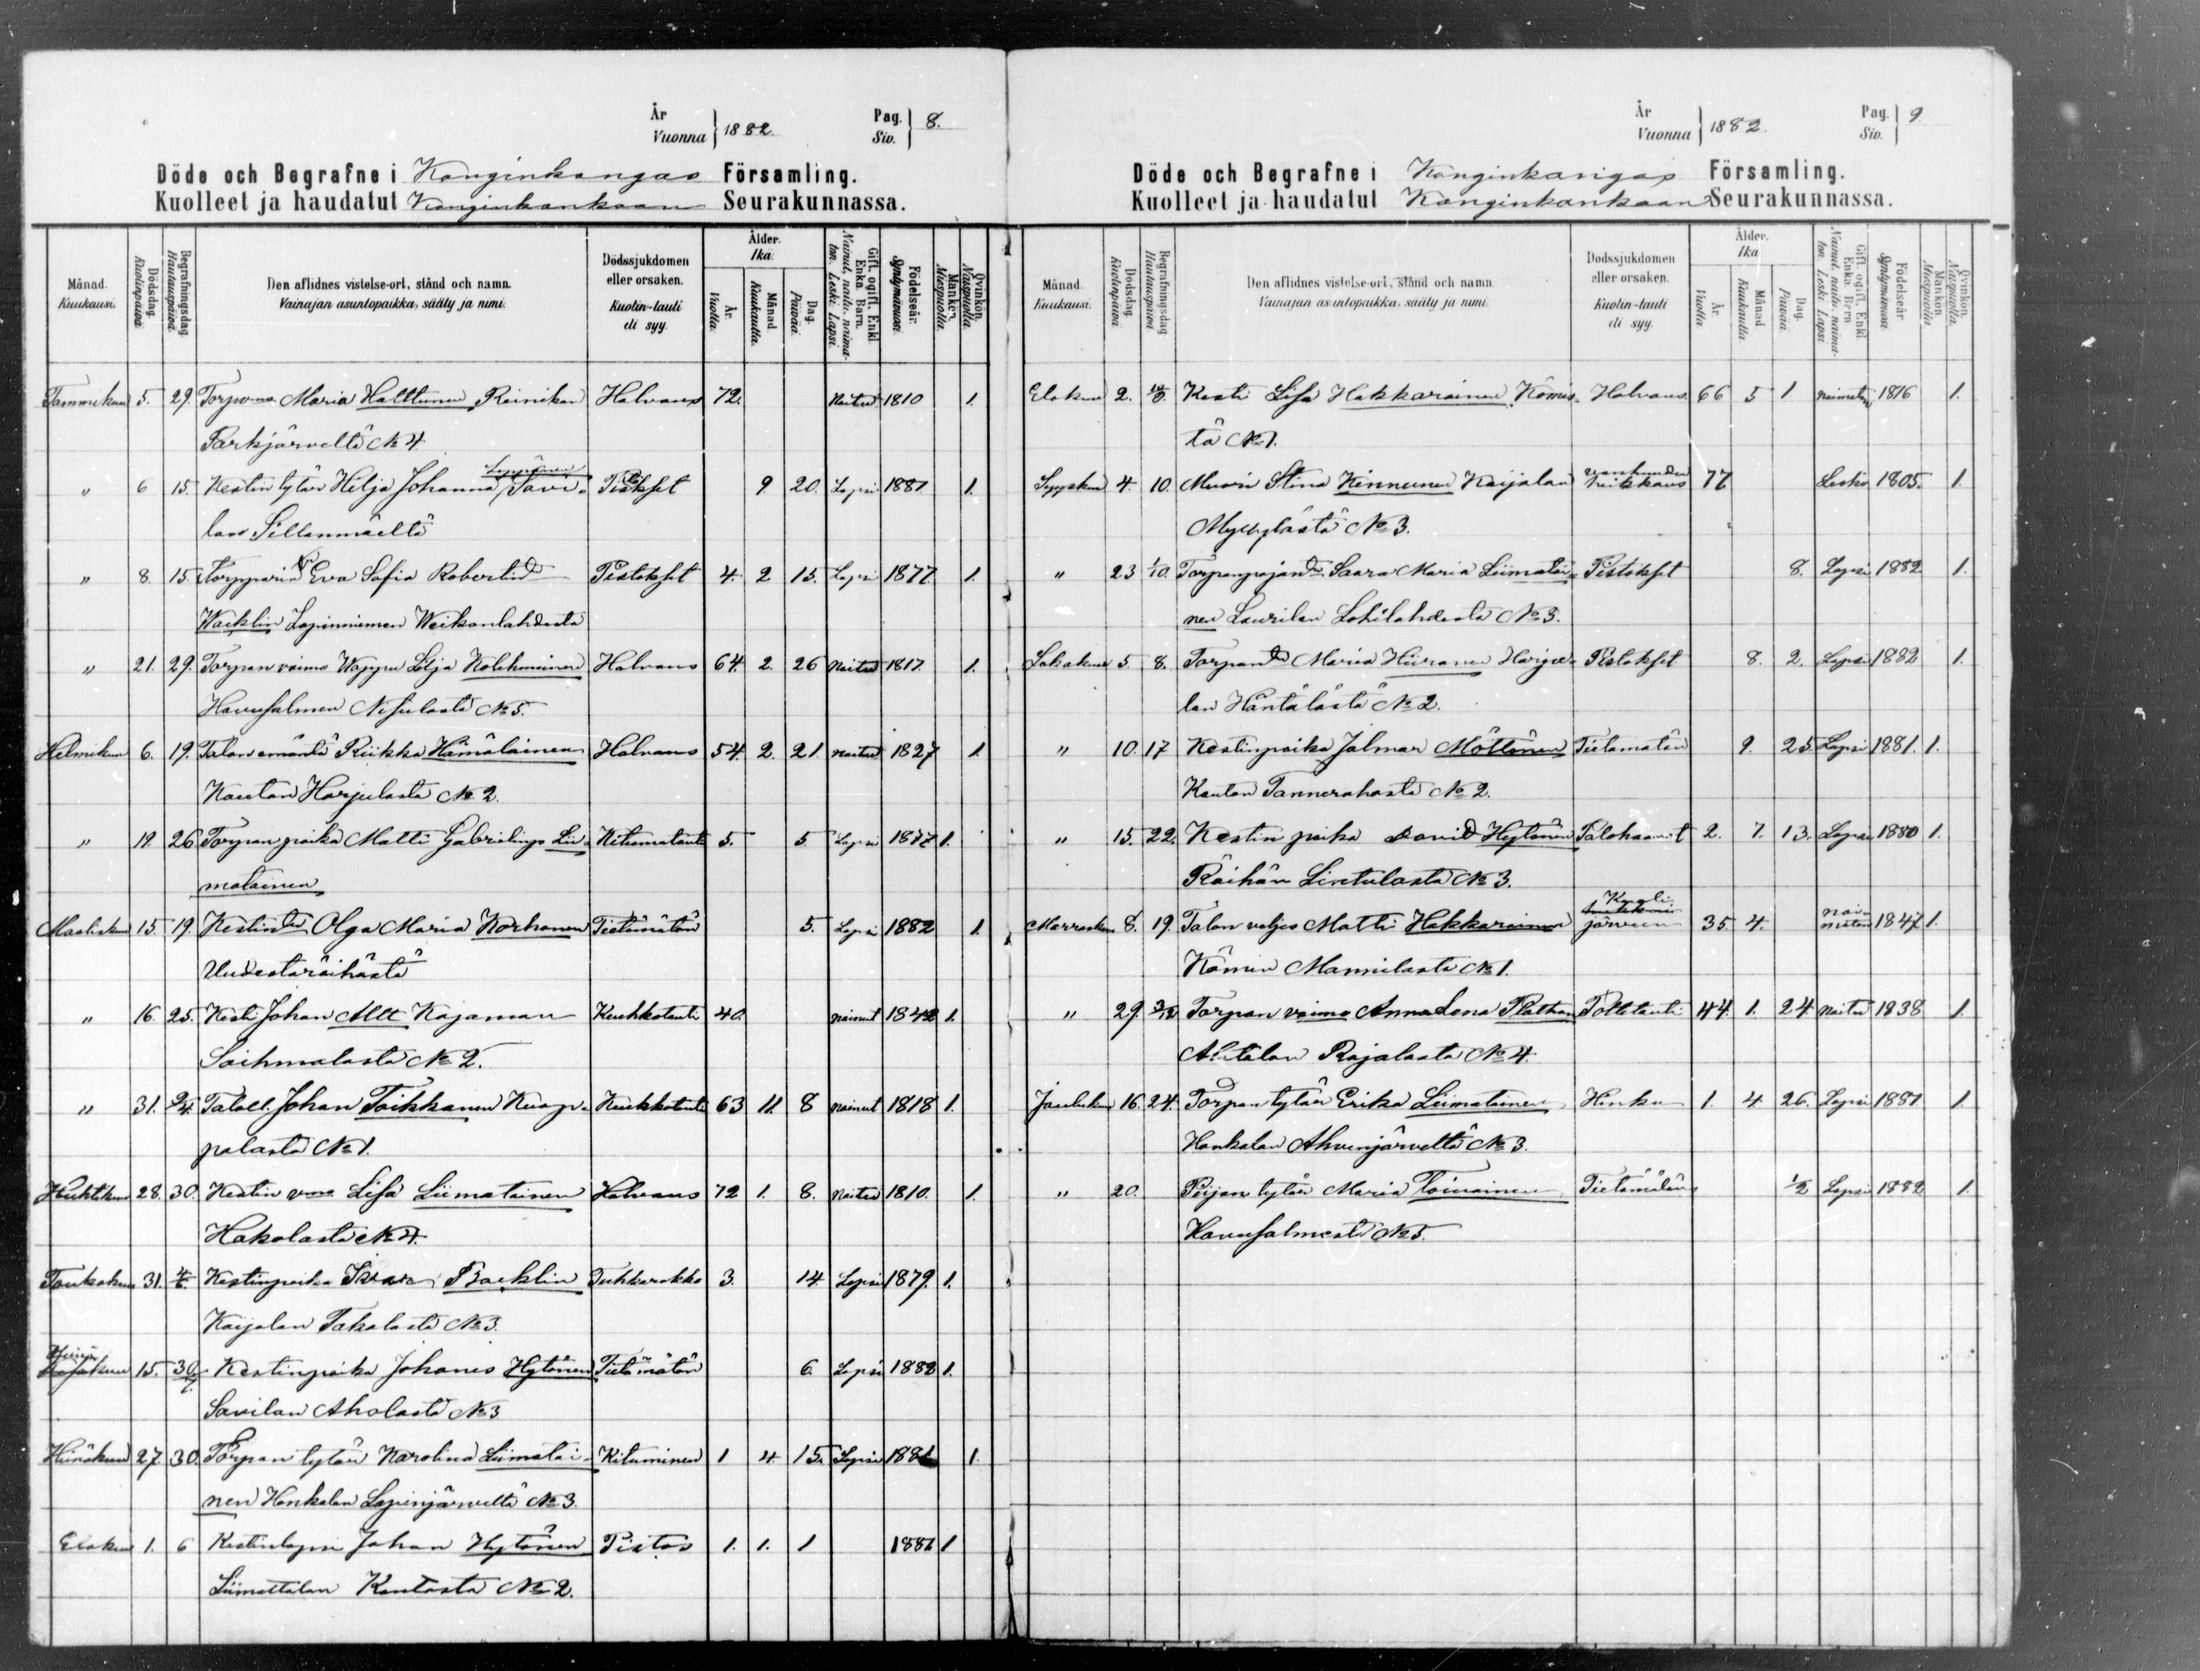 År
Vuonna } 1882.
Pag.
Siv. } 8.
Döde och Begrafne i Konginkangas Församling.
Kuolleet ja haudatut Konginkankaan Seurakunnassa.
Månad. Kuukausi.
Dödsdag. Kuolinpäivä.
Begrafningsdag Hautauspäivä.
Den aflidnes vistelse-ort, stånd och namn. Vainajan asuntopaikka, sääty ja nimi.
Dödssjukdomen eller orsaken. Kuolin-tauti eli syy.
Ålder. Ikä.
År. Vuotta.
Månad Kuukautta.
Dag. Päivää.
Gift, ogift, Enkl. Enka. Barn. Nainut, naitu, naimaton. Leski. Lapsi.
Födelseår. Syntymävuosi.
Mankön. Miespuolia.
Qvinkön. Naispuolia.
Tammikuu 5. 29. Maria Halttunen Reinikan Halvaus 72. Naitu 1810 1.
Parkjärveltä No 4.
" 6 15. Kestin tytär Hilja Johanna Savi- 9. 20. Lapsi 1881 1.
lan Sillanmäeltä
" 8. 15. Torpparin Eva Sofia Robertind Pistokset 4. 2 15. Lapsi 1877 1.
Wacklin Lapinniemen Weikonlahdesta
" 21. 29. Torpan vaimo Wappu Lilja Kolehmainen Halvaus 64. 2. 26 Naitu 1817. 1.
Havusalmen No 5.
Helmikuu 6. 19. Talon emäntä Riikka Hämäläinen Halvaus 54. 2. 21. Naitu 1827 1.
Kautan Harjulasta No 2.
" 19. 26. Torpan poika Matti Gabrielinp. Lii- 5. 5. Lapsi 1877 1.
matainen
Maaliskuu 15. 19. Kestin Olga Maria Korhonen Tietämätön 5. Lapsi 1882 1.
Uudestaräihästä
" 16. 25. Kesti Johan Allt Kajaman Keuhkotauti 40. nainut 1842 1.
Saihmalasta No 2.
" 31. 2/4. Taloll. Johan Toikkanen Kuop- Keuhkotauti 63 11. 8 nainut 1818 1.
palasta No 1.
Huhtikuu 28. 30. Kestin vmo Lisa Liimatainen Halvaus 72 1. 8. Naitu 1810. 1.
Hakolasta No 4.
Toukokuu 31. 4/6. Kestinpoika Backlin Tuhkarokko 3. 14. Lapsi 1879. 1.
Kaijalan Takalasta No 3.
Heinä 15. 30/7. Kestinpoika Johanes Hytönen Tietämätön 6. Lapsi 1882 1.
Savilan Aholasta No 3
Heinäkuu 27. 30. Torpan tytär Karolina Liimatai- Kituminen 1 4. 15. Lapsi 1881 1.
nen Honkolan Lapinjärveltä No 3.
Elokuu 1. 6 Kestinlapsi Johan Hytönen Pistos 1. 1. 1 1881 1
Liimattalan Kautosta No 2.
År
Vuonna } 1882.
Pag.
Siv. } 9
Döde och Begrafne i Konginkangas Församling.
Kuolleet ja haudatut Konginkankaan Seurakunnassa.
Månad. Kuukausi.
Dödsdag. Kuolinpäivä.
Begrafningsdag Hautauspäivä.
Den aflidnes vistelse-ort, stånd och namn. Vainajan asuntopaikka, sääty ja nimi.
Dödssjukdomen eller orsaken. Kuolin-tauti eli syy.
Ålder. Ikä.
År. Vuotta
Månad Kuukautta.
Dag. Päivää.
Gift, ogift, Enkl. Enka. Brrn Nainut, naitu, naimaton. Leski. Lapsi.
Födelseår. Syntymävuosi.
Mankön. Miespuolia.
Qvinkön. Naispuolia.
Elokuu 2. Kesti Lisa Hakkarainen Kömis- Halvaus. 66 5 1. naimaton 1816 1.
tä No 1.
Syyskuu 4. 10. Muori Stina Kinnunen Kaijalan vanhuuden heikkous 77 Leski 1805. 1.
Myllylästä No 3.
" 23 1/10. Torpanpojan Saara Maria Liimatai- Pistokset 8. Lapsi 1882 1.
nen Laurilan Lohilahdesta No 3.
Lokakuu 5. 8. Torpan Maria Hiiranen Harju- Pistokset 8. 2. Lapsi 1882 1.
lan Häntälästä No 2.
" 10. 17 Kestinpoika Jalmar Möttönen Tietämätön 9. 25. Lapsi 1881. 1.
Kautan Tannerahosta No 2.
" 15. 22. Kestin poika David Hytönen Palohaavat 2. 7. 13. Lapsi 1880 1.
Räihän Lintulasta No 3.
Marraskuu 8. 19. Talon veljes Matti Hakkarainen Kuoli järveen 35. 4. naimaton 1847 1.
Kömin Mannilasta No 1.
" 29. 3/12 Torpan vaimo Anna Lena Plathan Polttotauti 44. 1. 24 Naitu 1838 1.
Ahtolan Rajalasta No 4.
Jouluku 16. 24. Torpan tytär Erika Liimatainen Hinku 1. 4 26. Lapsi 1881 1.
Honkolan Ahvenjärveltä No 3.
" 20. Piijan tytär Maria Toivainen Tietämätön 1/2 Lapsi 1882 1.
Havusalmesta No 5.